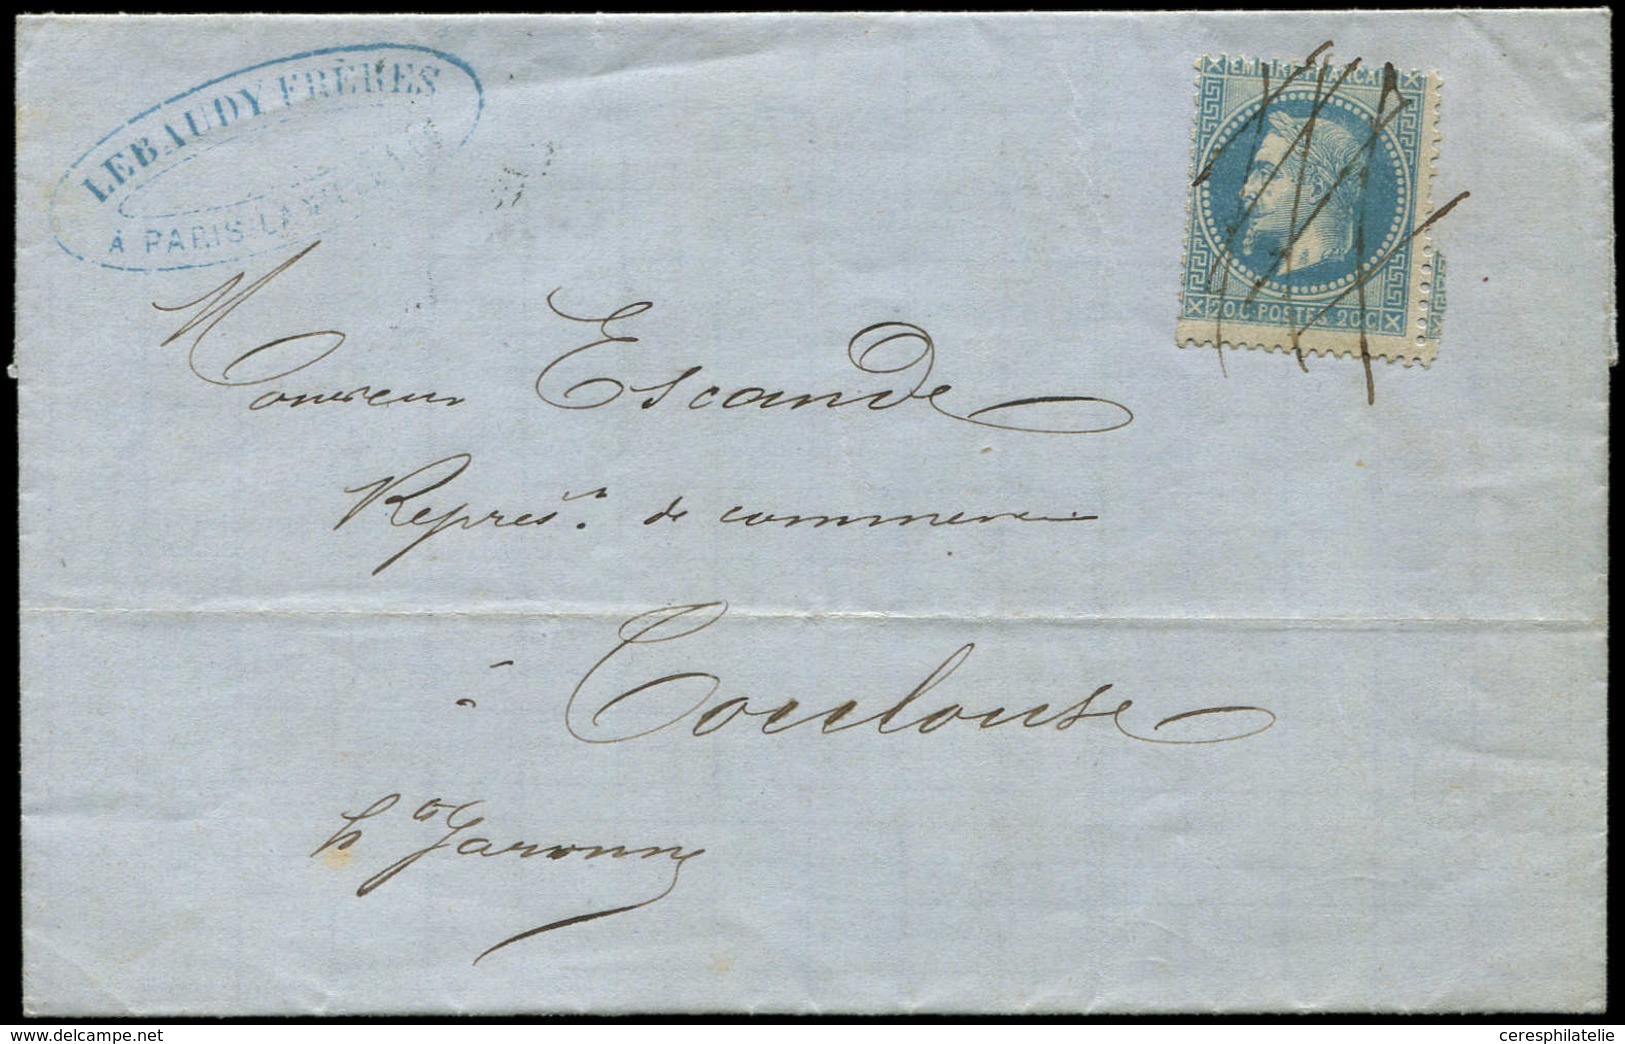 LEBAUDY FRÈRES
À PARIS-LA VILLETTE
EMPIRE FRANCAIS
20C POSTES 20C
Monsieur Escande
Représ.t de commerce
à Toulouse
hte Garonne
delcampe.net
ceresphilatelie